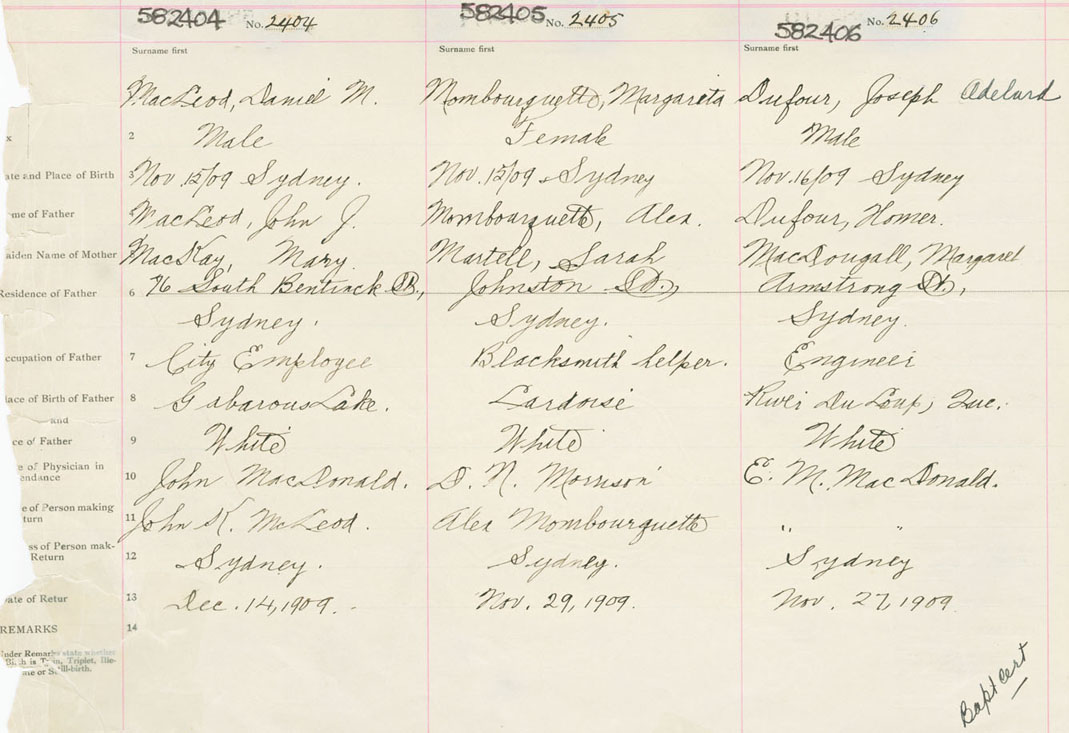 582404 No. 2404 582405 No. 2405 582406 No. 2406
Surname first Surname first Surname first
MacLeod, Daniel M. Mombourquette, Margareta Dufour, Joseph Adelard
x 2 Male Female Male
ate and Place of Birth 3 Nov. 15/09 Sydney. Nov. 15/09 Sydney Nov. 16/09 Sydney
me of Father MacLeod, John J. Mombourquette, Alex. Dufour, Homer.
aiden Name of Mother MacKay, Mary Martell, Sarah MacDougall, Margaret
Residence of Father 6 76 South Bentinck St., Johnston St., Armstrong St.,
Sydney. Sydney. Sydney.
ccupation of Father 7 City Employee Blacksmith helper. Engineer
lace of Birth of Father 8 Gabarous Lake. Lardoise River Du Loup, Que.
and
ce of Father 9 White White White
e of Physician in
endance 10 John MacDonald. D. N. Morrison E. M. MacDonald.
e of Person making
turn 11 John K. McLeod. Alex Mombourquette " "
ss of Person mak-
Return 12 Sydney. Sydney. Sydney
ate of Retur 13 Dec. 14, 1909. Nov. 29, 1909. Nov. 27, 1909.
REMARKS 14
Under Remarks state whether
Birth is Twin, Triplet, Ille-
me or Still-birth.
Bapt cert